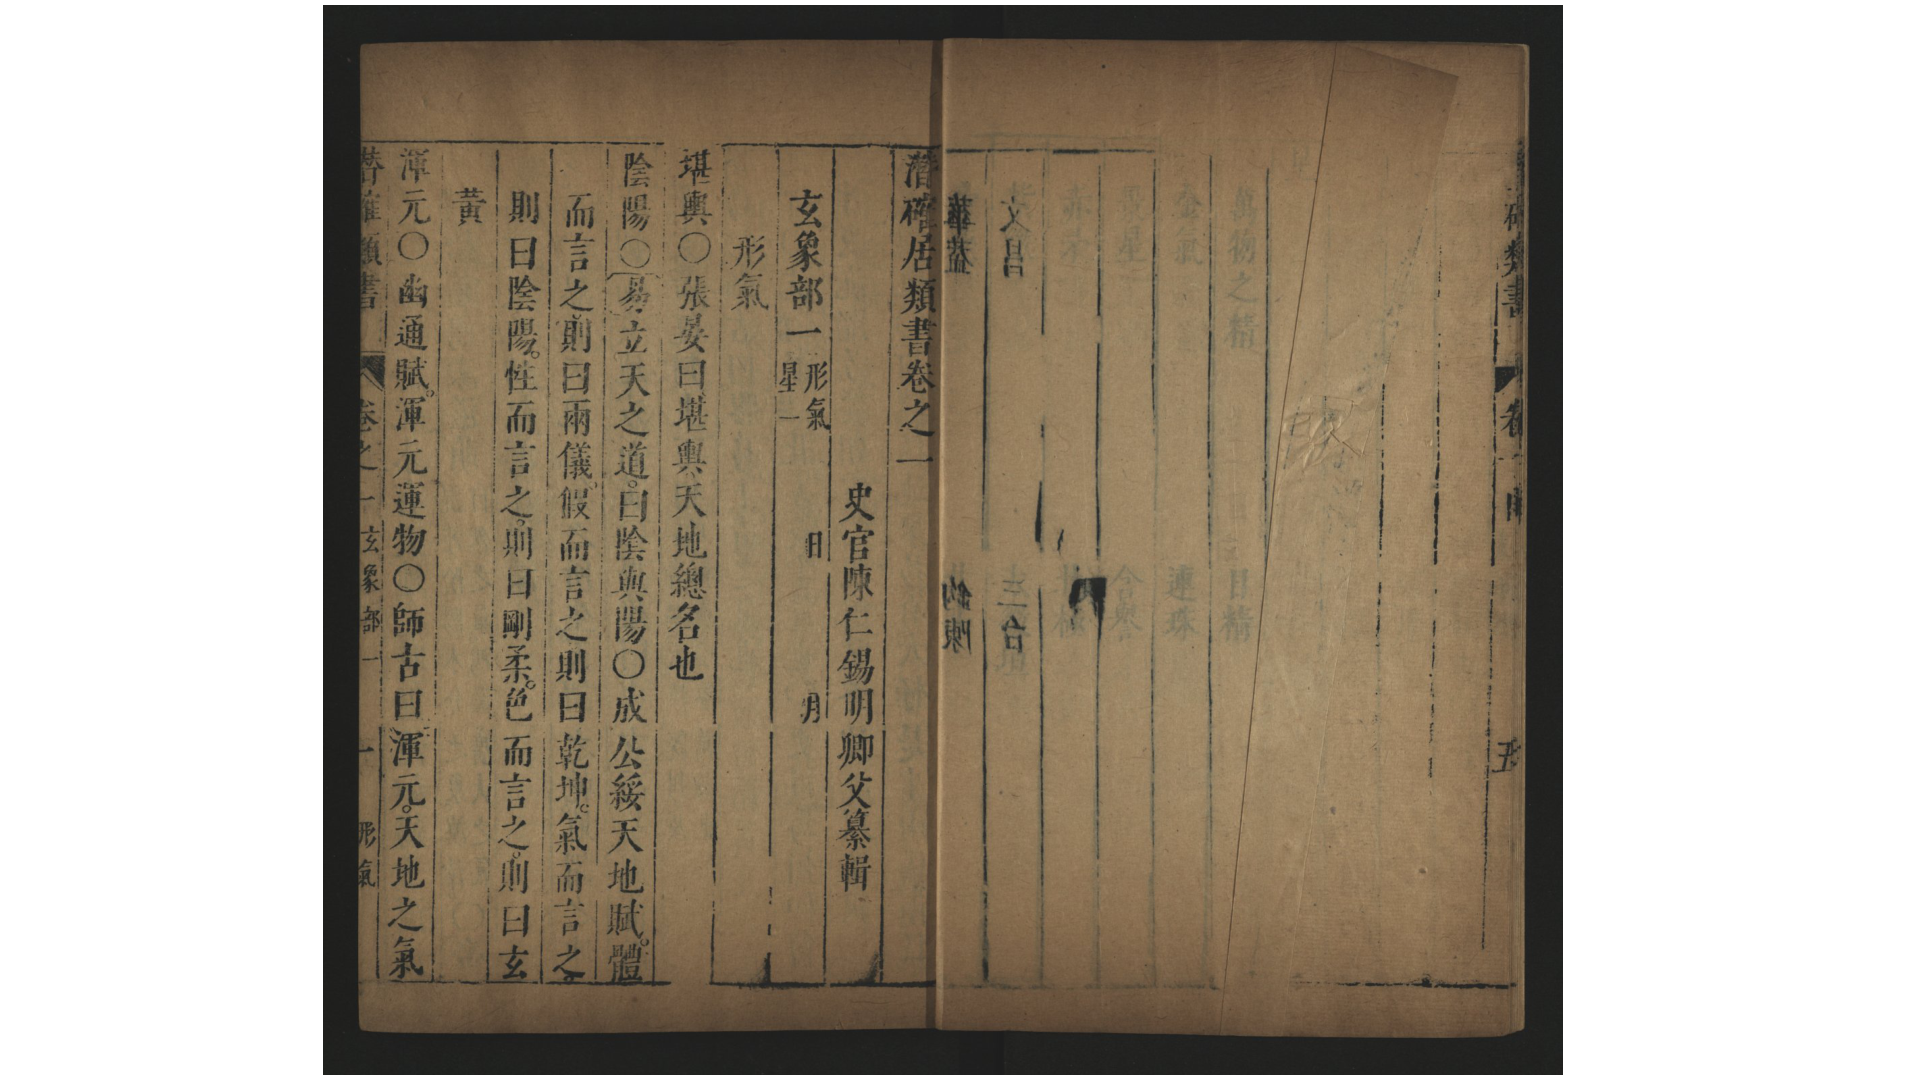 潛確類書
卷一
五
文昌
三台
華蓋
鈎陳
潛確居類書卷之一
史官陳仁錫明卿父纂輯
玄象部一
形氣
日
月
星一
形氣
堪輿〇張晏曰堪輿天地總名也
陰陽〇易立天之道。曰陰與陽〇成公綏天地賦。體
而言之則曰兩儀。假而言之則曰乾坤。氣而言之。
則曰陰陽。性而言之。則曰剛柔。色而言之。則曰玄
黃
渾元〇幽通賦。渾元運物〇師古曰渾元。天地之氣
潛確類書
卷之一
玄象部一
一
形氣